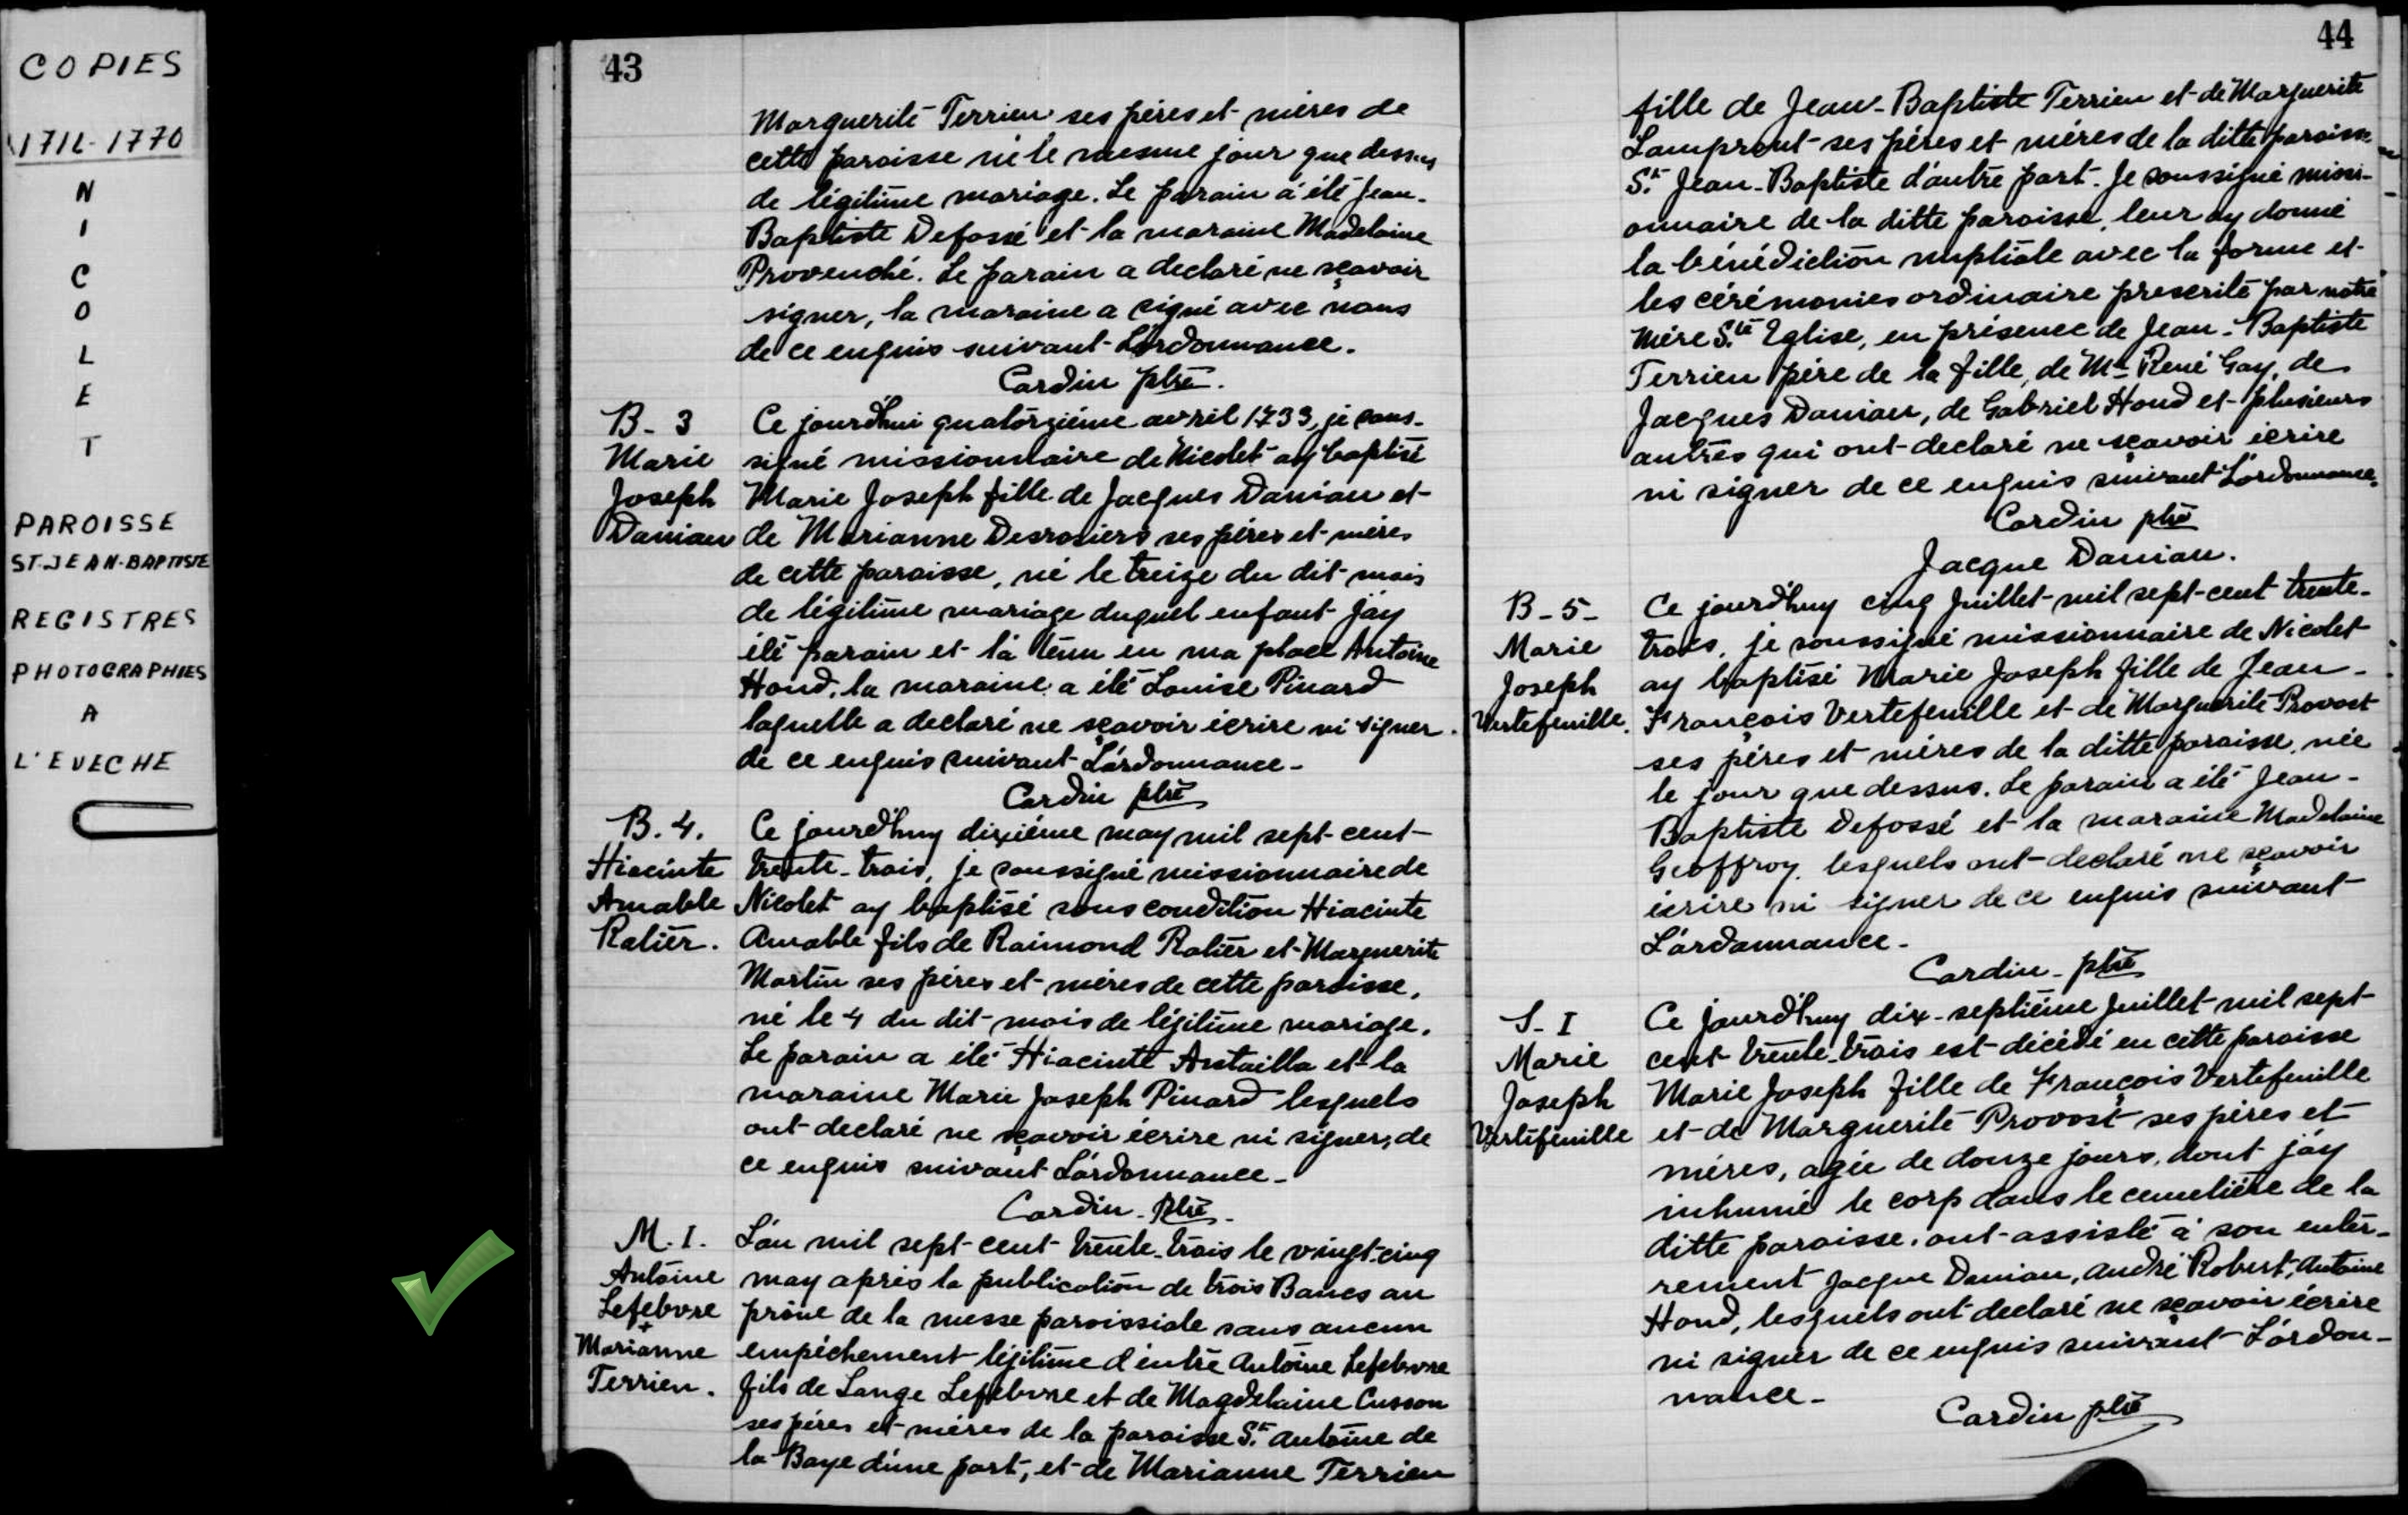 COPIES
1711-1770
N
I
C
O
L
E
T
PAROISSE
ST-JEAN-BAPTISTE
REGISTRES
PHOTOGRAPHIES
A
L'EVECHE
43
Marguerite Terrien ses péres et méres de
cette paroisse né le mesme jour que dessus
de légitime mariage. Le parain a été Jean-
Baptiste Defossé et la maraine Madelaine
Provenché. Le parain a declaré ne sçavoir
signer, la maraine a signé avec nous
de ce enquis suivant L'ordonnance.
Cardin ptre.
B-3
Marie
Joseph
Danian
Ce jourd'hui quatorziéme avril 1733, je sous-
signé missionnaire de Nicolet ay baptisé
Marie Joseph fille de Jacques Danian et
de Marianne Desrosiers ses péres et méres
de cette paroisse, né le treize du dit mois
de légitime mariage duquel enfant j'ay
été parain et l'a tenu en ma place Antoine
Houd, la maraine a été Louise Pinard
laquelle a declaré ne sçavoir écrire ni signer.
de ce enquis suivant L'ordonnance-
Cardin ptre
B.4.
Hiacinte
Amable
Ratier.
Ce jourd'huy dixiéme may mil sept-cent-
trente-trois, je soussigné missionnaire de
Nicolet ay baptisé sous condition Hiacinte
Amable fils de Raimond Ratier et Marguerite
Martin ses péres et méres de cette paroisse,
né le 4 du dit mois de légitime mariage.
Le parain a été Hiacinte Astailla et la
maraine Marie Joseph Pinard lesquels
ont declaré ne sçavoir écrire ni signer, de
ce enquis suivant L'ordonnance-
Cardin-Ptre-
M.I.
Antoine
Lefebvre
+
Marianne
Terrien.
L'an mil sept-cent trente-trois le vingt-cinq
may après la publication de trois Bancs au
prône de la messe paroissiale sans aucun
empéchement légitime d'entre Antoine Lefebvre
fils de Lange Lefebvre et de Magdelaine Cusson
ses péres et méres de la paroisse St. Antoine de
la Baye d'une part, et de Marianne Terrien
44
fille de Jean-Baptiste Terrien et de Marguerite
Lampront ses péres et méres de la ditte paroisse
St. Jean-Baptiste d'autre part. Je soussigné missi-
onnaire de la ditte paroisse, leur ay donné
la bénédiction nuptiale avec la forme et
les cérémonies ordinaire prescrite par notre
Mére Ste Eglise, en présence de Jean-Baptiste
Terrien pére de la fille, de Mr René Gay, de
Jacques Danian, de Gabriel Houd et plusieurs
autres qui ont declaré ne sçavoir écrire
ni signer de ce enquis suivant L'ordonnance.
Cardin ptre
Jacque Danian.
B-5-
Marie
Joseph
Vertefeuille.
Ce jourd'huy cinq Juillet mil sept-cent trente-
trois, je soussigné missionnaire de Nicolet
ay baptisé Marie Joseph fille de Jean-
François Vertefeuille et de Marguerite Provost
ses péres et méres de la ditte paroisse, née
le jour que dessus. Le parain a été Jean-
Baptiste Defossé et la maraine Madelaine
Geoffroy lesquels ont declaré ne sçavoir
écrire ni signer de ce enquis suivant
L'ordonnance-
Cardin-ptre
S-I
Marie
Joseph
Vertefeuille
Ce jourd'huy dix-septiéme Juillet mil sept-
cent trente-trois est décédé en cette paroisse
Marie Joseph fille de François Vertefeuille
et de Marguerite Provost ses péres et
méres, agée de douze jours, dont j'ay
inhumé le corp dans le cemetiére de la
ditte paroisse. ont assisté à son enter-
rement Jacque Danian, André Robert, Antoine
Houd, lesquels ont declaré ne sçavoir écrire
ni signer de ce enquis suivant L'ordon-
nance-
Cardin ptre